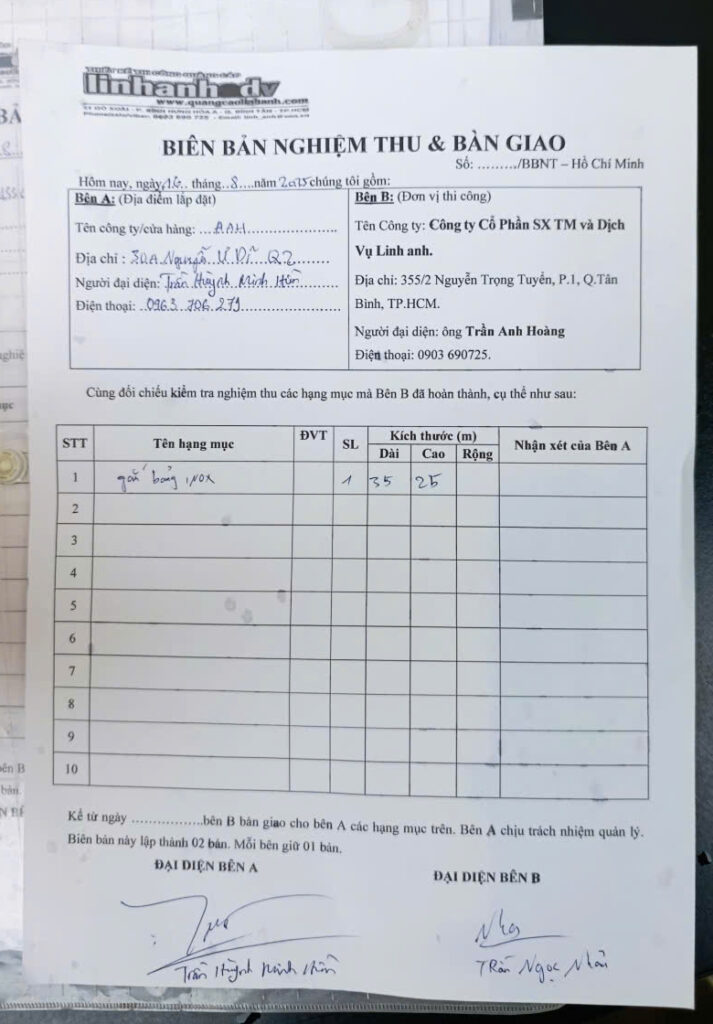 linhanh dv
www.quangcaolinhanh.com
BIÊN BẢN NGHIỆM THU & BÀN GIAO
Số: ........./BBNT – Hồ Chí Minh
Hôm nay, ngày 16 tháng 8 năm 2025 chúng tôi gồm:
Bên A: (Địa điểm lắp đặt)
Tên công ty/cửa hàng: AAH
Địa chỉ : 30A Nguyễn Ư Dĩ Q2
Người đại diện: Trần Huỳnh Minh Hiền
Điện thoại: 0963 706 279
Bên B: (Đơn vị thi công)
Tên Công ty: Công ty Cổ Phần SX TM và Dịch
Vụ Linh anh.
Địa chỉ: 355/2 Nguyễn Trọng Tuyển, P.1, Q.Tân
Bình, TP.HCM.
Người đại diện: ông Trần Anh Hoàng
Điện thoại: 0903 690725.
Cùng đối chiếu kiểm tra nghiệm thu các hạng mục mà Bên B đã hoàn thành, cụ thể như sau:
STT Tên hạng mục ĐVT SL Kích thước (m) Nhận xét của Bên A
Dài Cao Rộng
1 gắn bảng INOX 1 35 25
2
3
4
5
6
7
8
9
10
Kể từ ngày ..................bên B bàn giao cho bên A các hạng mục trên. Bên A chịu trách nhiệm quản lý.
Biên bản này lập thành 02 bản. Mỗi bên giữ 01 bản.
ĐẠI DIỆN BÊN A
ĐẠI DIỆN BÊN B
Trần Huỳnh Minh Hiền
Trần Ngọc